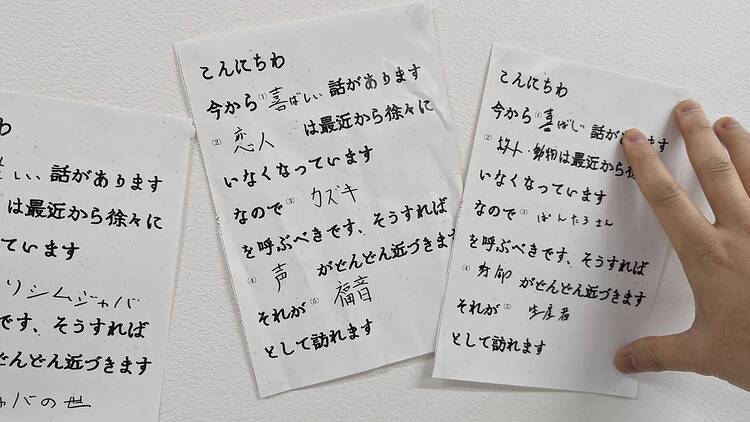 わ
い 話があります
は最近から徐々に
ています
リシムジャバ
です、そうすれば
どんどん近づきます
ャバの世
こんにちわ
今から(1)喜ばしい話があります
(2)恋人 は最近から徐々に
いなくなっています
なので(3)カズキ
を呼ぶべきです、そうすれば
(4)声 がどんどん近づきます
それが(5)福音
として訪れます
こんにちわ
今から(1)喜ばし 話が ます
(2) ・動物は最近から徐
いなくなっています
なので(3)ぽんたろさん
を呼ぶべきです、そうすれば
(4)寿命 がどんどん近づきます
それが(5)
として訪れます